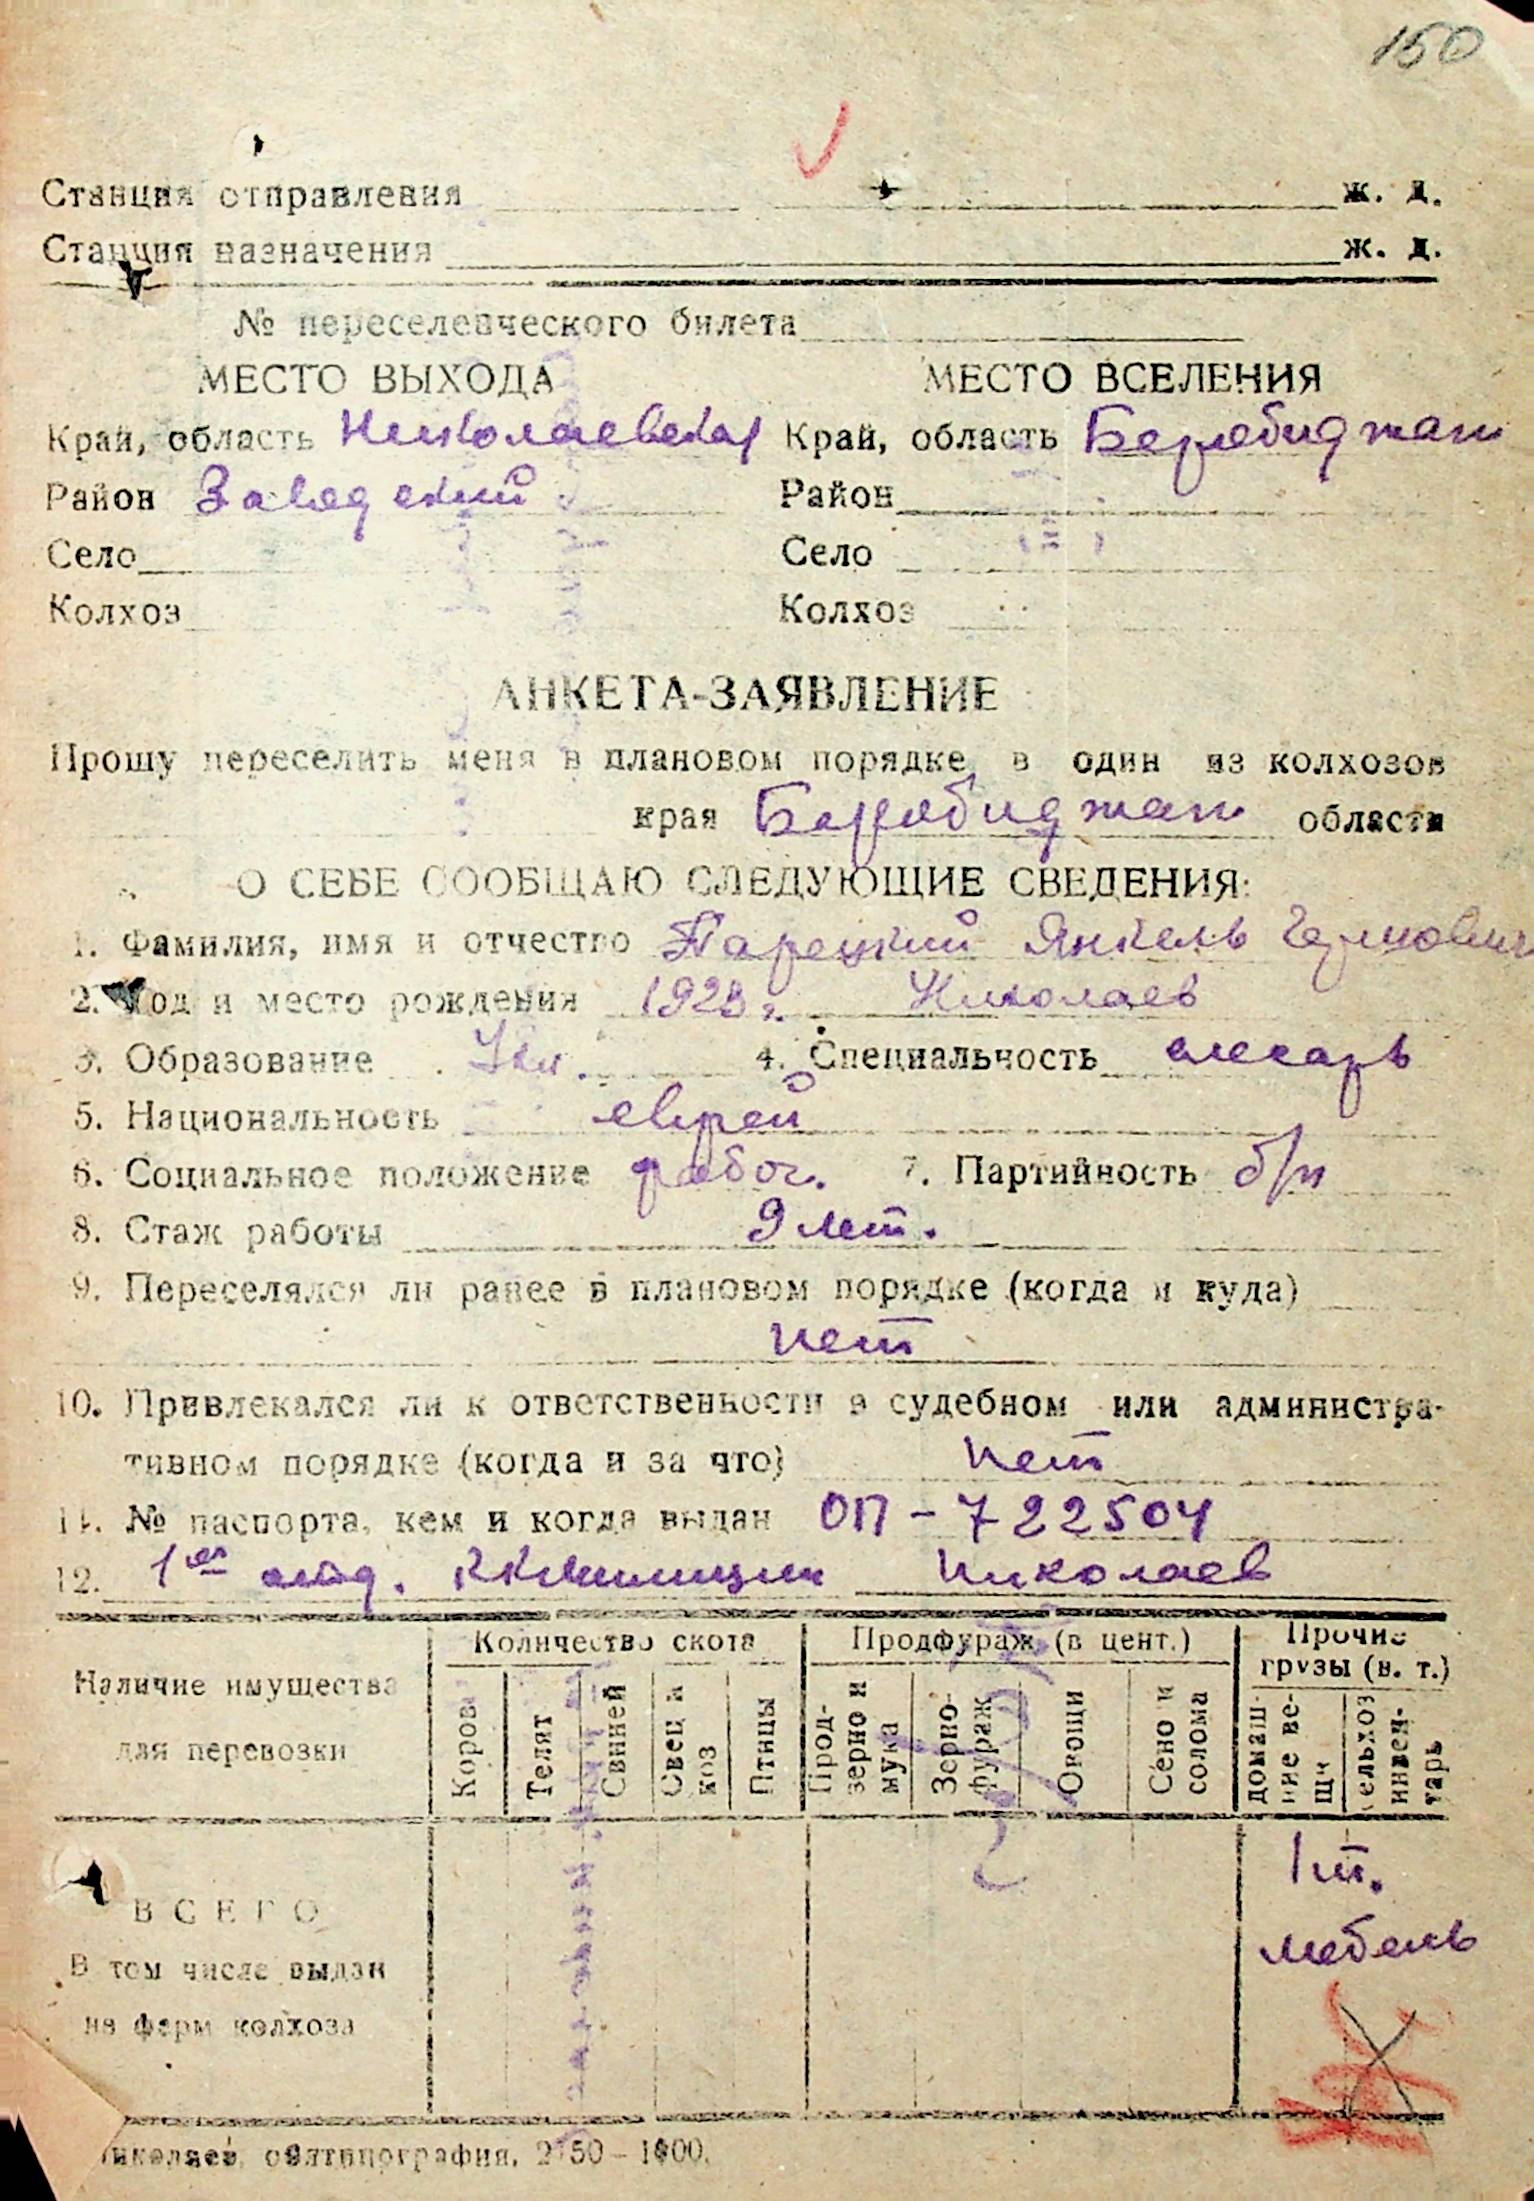 150
Станция отправления ж. д.
Станция назначения ж. д.
№ переселенческого билета
МЕСТО ВЫХОДА МЕСТО ВСЕЛЕНИЯ
Край, область Николаевская Край, область Беробиджан
Район Заводский Район
Село Село
Колхоз Колхоз
АНКЕТА-ЗАЯВЛЕНИЕ
Прошу переселить меня в плановом порядке в один из колхозов
края Беробиджан области
О СЕБЕ СООБЩАЮ СЛЕДУЮЩИЕ СВЕДЕНИЯ:
1. Фамилия, имя и отчество Парецкий Янкель
2. Год и место рождения 1923 г. Николаев
3. Образование 7 кл. 4. Специальность слесарь
5. Национальность еврей
6. Социальное положение рабоч. 7. Партийность б/п
8. Стаж работы 9 лет.
9. Переселялся ли ранее в плановом порядке (когда и куда)
нет
10. Привлекался ли к ответственности в судебном или администра-
тивном порядке (когда и за что) нет
11. № паспорта, кем и когда выдан ОП-722504
12. 1ое отд. милиции Николаев
Наличие имущества для перевозки Количество скота Продфураж (в цент.) Прочие грузы (в. т.)
Коров Телят Свиней Овец и коз Птицы Прод-зерно и мука Зерно-фураж Овощи Сено и солома домаш-ние ве-щи сельхоз инвен-тарь
ВСЕГО 1 т.
мебель
В том числе выдан
на ферм колхоза
Николаев, облтипография. 2150–1000.